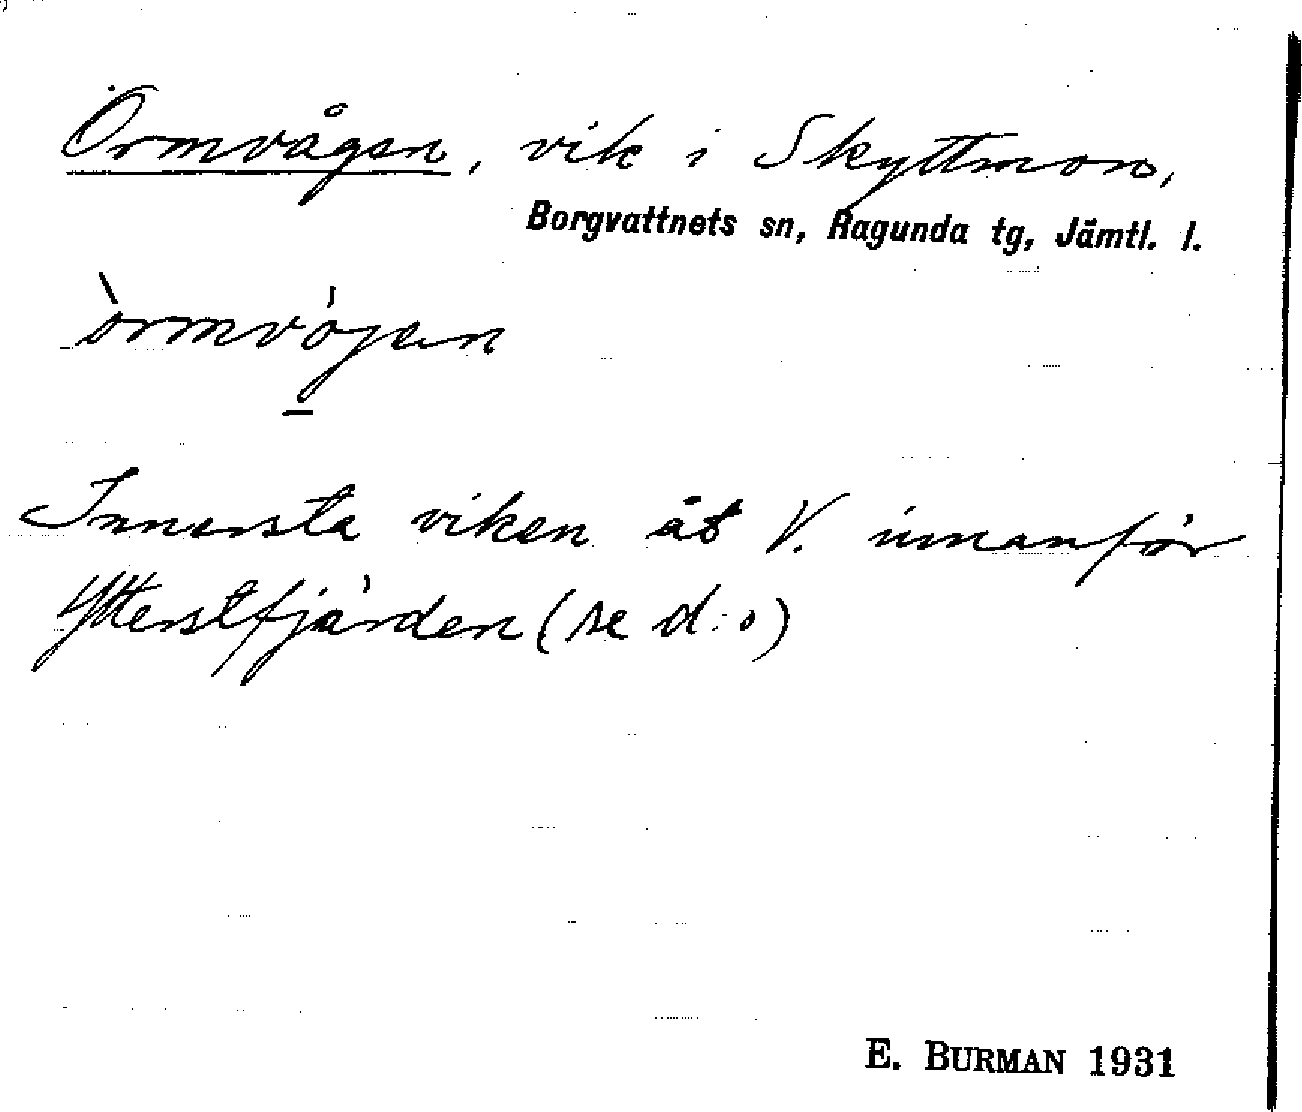 Örmvågen, vik i Skyttmon,
Borgvattnets sn, Ragunda tg, Jämtl. l.
òrmvógen
Innersta viken åt V. innanför
Ytterstfjärden (se d:o)
E. BURMAN 1931